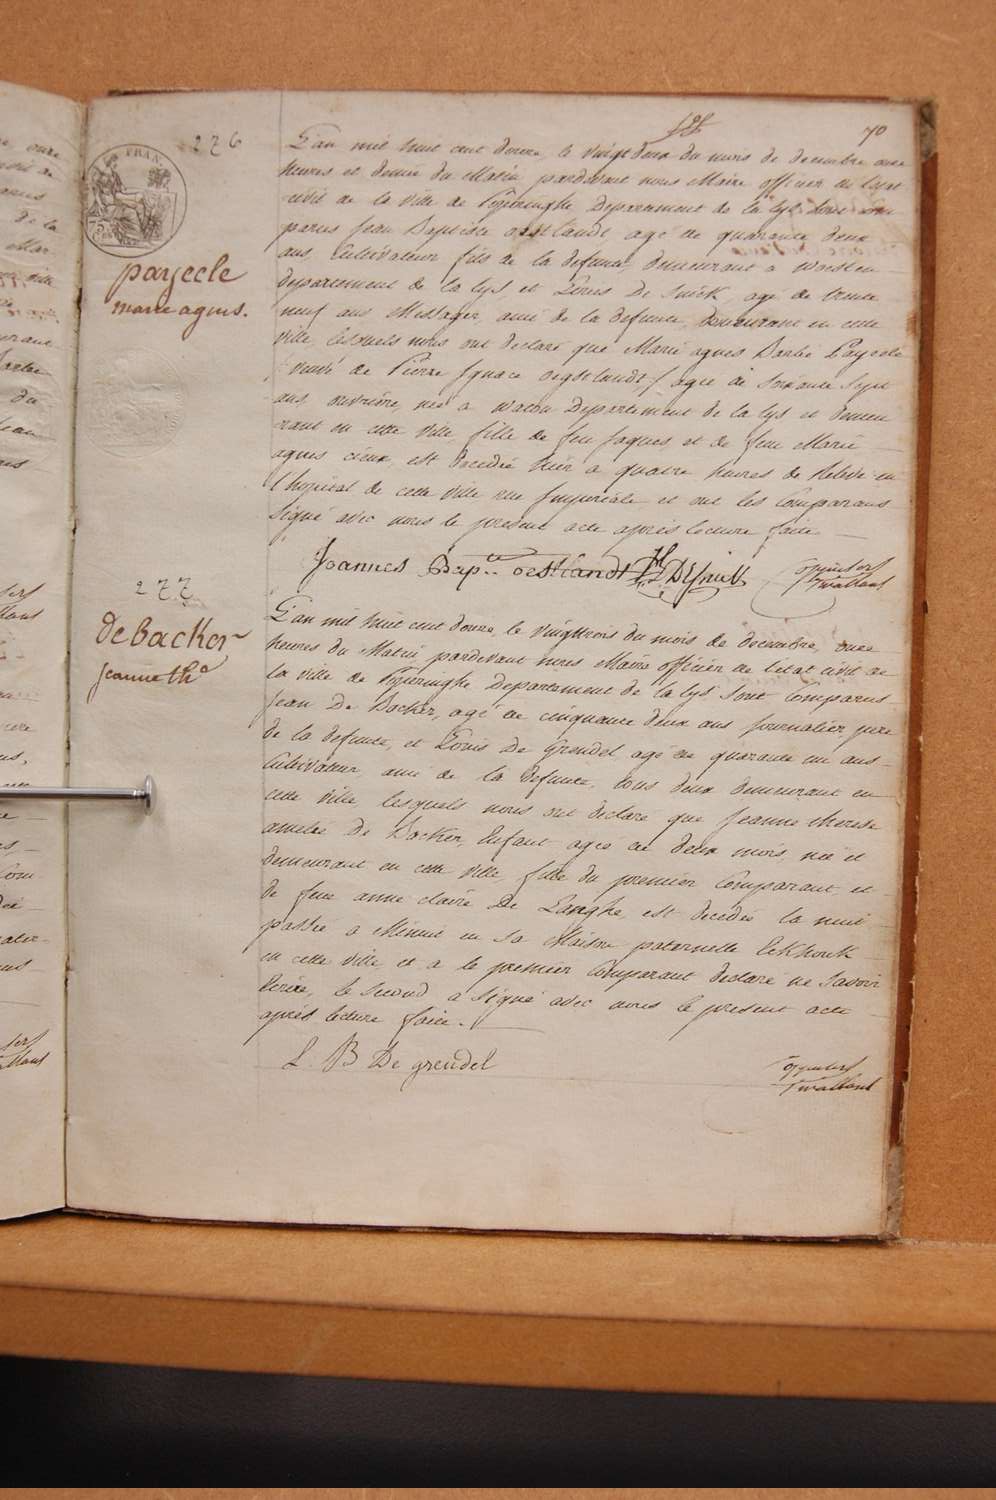 70
276
FRAN.
payecle
marie agnes.
L'an mil huit cent douze, le vingt deux du mois de decembre onze
heures et demie du Matin pardevant nous Maire officier de l'etat
civil de la ville de Poperinghe Departement de la lys sont com
parus Jean Baptiste oestlandt agé de quarante deux
ans, Cultivateur fils de la defunte, demeurant a
departement de la lys et Louis De Snick, agé de trente
neuf ans Messager, ami de la defunte, demeurant en cette
ville, lesquels nous ont declaré que Marie agnes Barbe Payecle
veuve de Pierre Ignace agée de soixante sept
ans ouvrière, née a watou Departement de la lys et demeu
rant en cette ville fille de feu Jaques, et de feue Marie
agnes cieux, est decedée hier a quatre heures de Relevé en
l'hopital de cette ville rue Imperiale et ont les Comparans
signé avec nous le present acte après lecture faite
Joannes Bapte oestlandt DeSnick
277
de backer
jeanne the
L'an mil huit cent douze, le vingttrois du mois de decembre, onze
heures du Matin pardevant nous Maire officier de l'etat civil de
la ville de Poperinghe Departement de la lys sont comparus
Jean De Backer, agé de cinquante deux ans journalier, pere
de la defunte, et Louis De Grendel agé de quarante un ans
Cultivateur, ami de la defunte, tous deux demeurant en
cette ville, lesquels nous ont declaré que Jeanne therese
amelie De Backer, Enfant agée de deux mois, née et
demeurant en cette ville, fille du premier Comparant, et
de feue anne claire De Langhe, est decedée la nuit
passée a Minuit en sa Maison paternelle
en cette ville, et a le premier Comparant declaré ne savoir
Ecrire, le second a signé avec nous le present acte
après lecture faite.
L. B De grendel